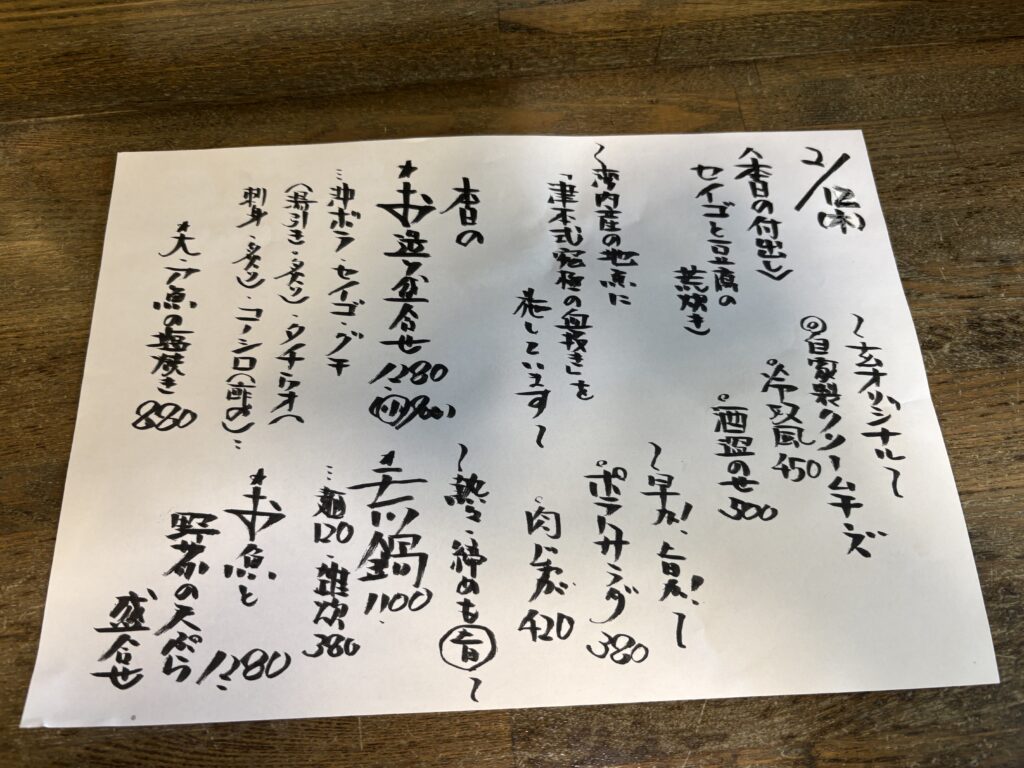 2/12(木)
〈本日の付出し〉
セイゴと豆腐の
荒炊き
〜湾内産の地魚に
「津本式究極の血抜き」を
施しています〜
本日の
*お造り盛合せ
1,280
…沖ボラ・セイゴ・グチ
(湯引き・炙り)・タチウオ(
刺身・炙り)・コノシロ(酢〆)…
*大アラ魚の塩焼き
880
〜オリジナル〜
◎自家製クリームチーズ
冷奴風
450
酒盗のせ
500
〜早え!、旨え!〜
ポテトサラダ
380
肉じゃが
420
〜熱々・締めも旨〜
*チリ鍋
1100
…麺120・雑炊
380
*お魚と
野菜の天ぷら
盛合せ
1,280